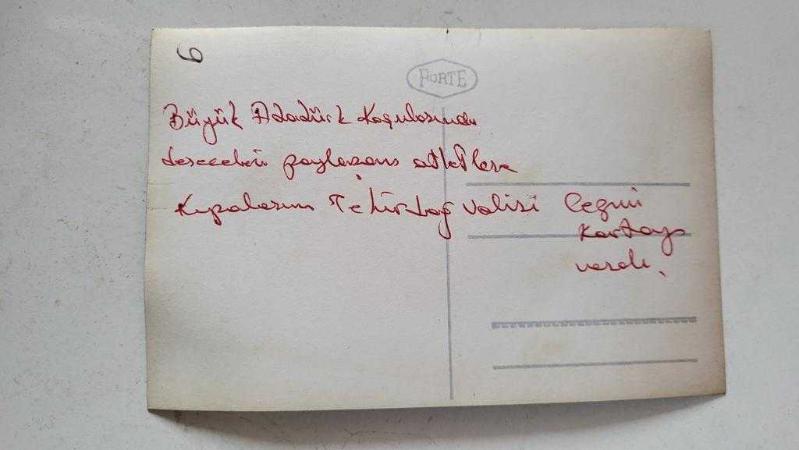 6
PORTE
Büyük Atatürk Koşularında
dereceleri paylaşan atletlere
Kupalarını Tekirdağ Valisi
Kartay
verdi.